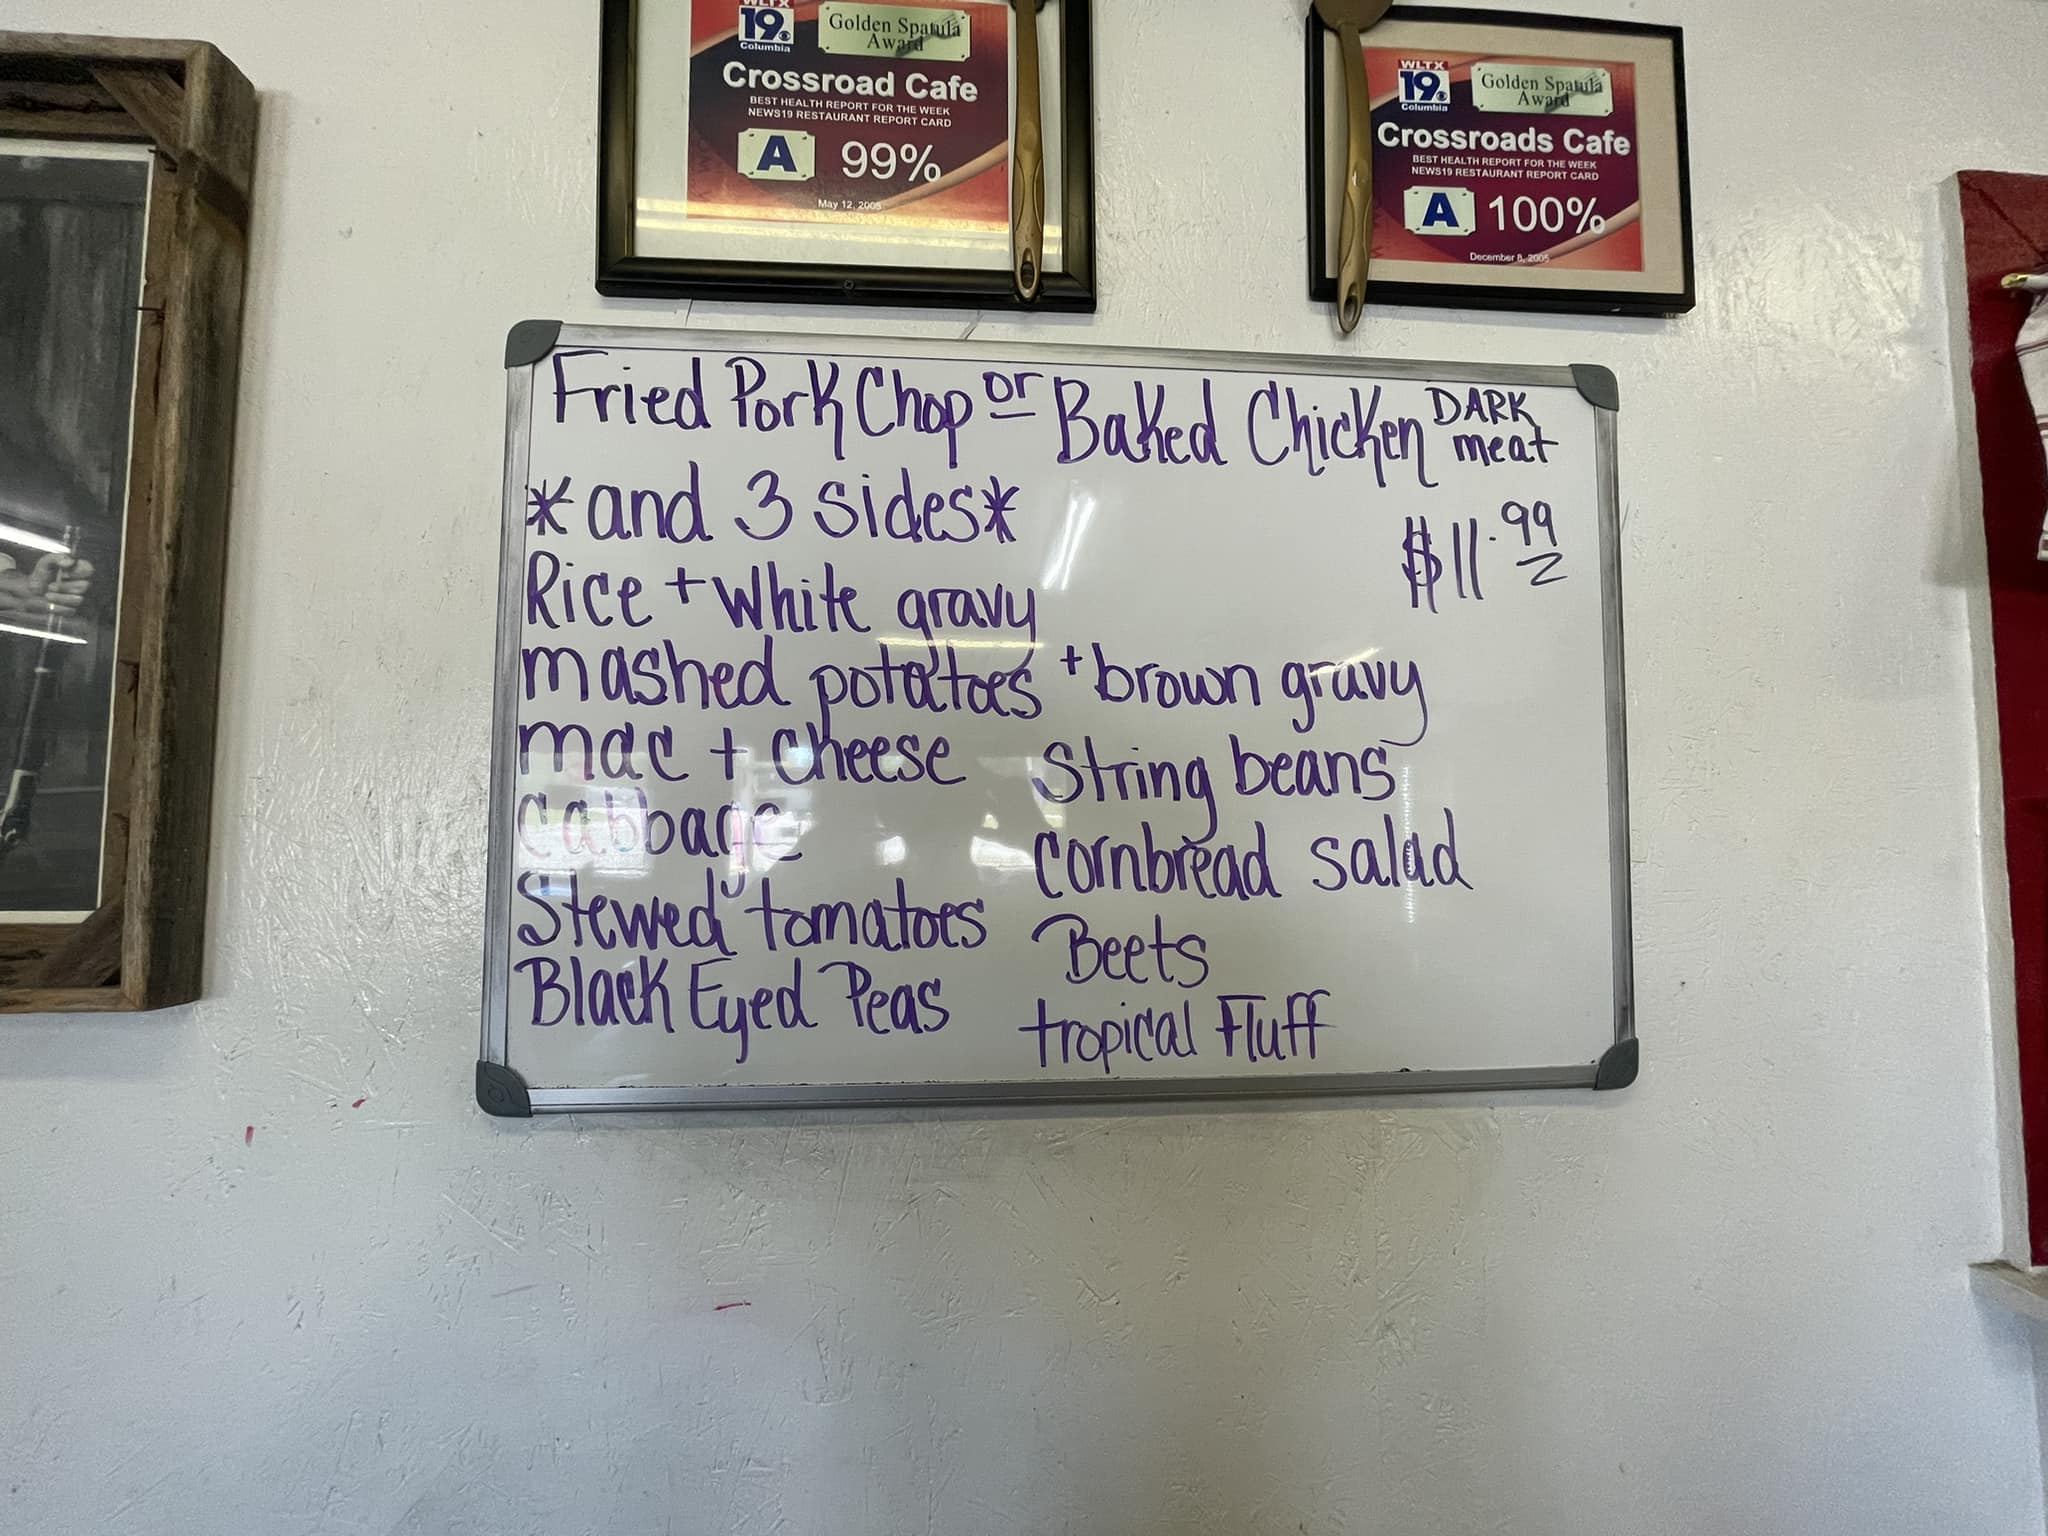 WLTX
19
Columbia
Golden Spatula
Award
Crossroad Cafe
BEST HEALTH REPORT FOR THE WEEK
NEWS19 RESTAURANT REPORT CARD
A 99%
May 12, 2005
WLTX
19
Columbia
Golden Spatula
Award
Crossroads Cafe
BEST HEALTH REPORT FOR THE WEEK
NEWS19 RESTAURANT REPORT CARD
A 100%
December 8, 2005
Fried Pork Chop or Baked Chicken DARK meat
*and 3 sides*
$11.99
Rice + white gravy
mashed potatoes + brown gravy
mac + cheese
cabbage
Stewed tomatoes
Black Eyed Peas
String beans
cornbread salad
Beets
tropical Fluff